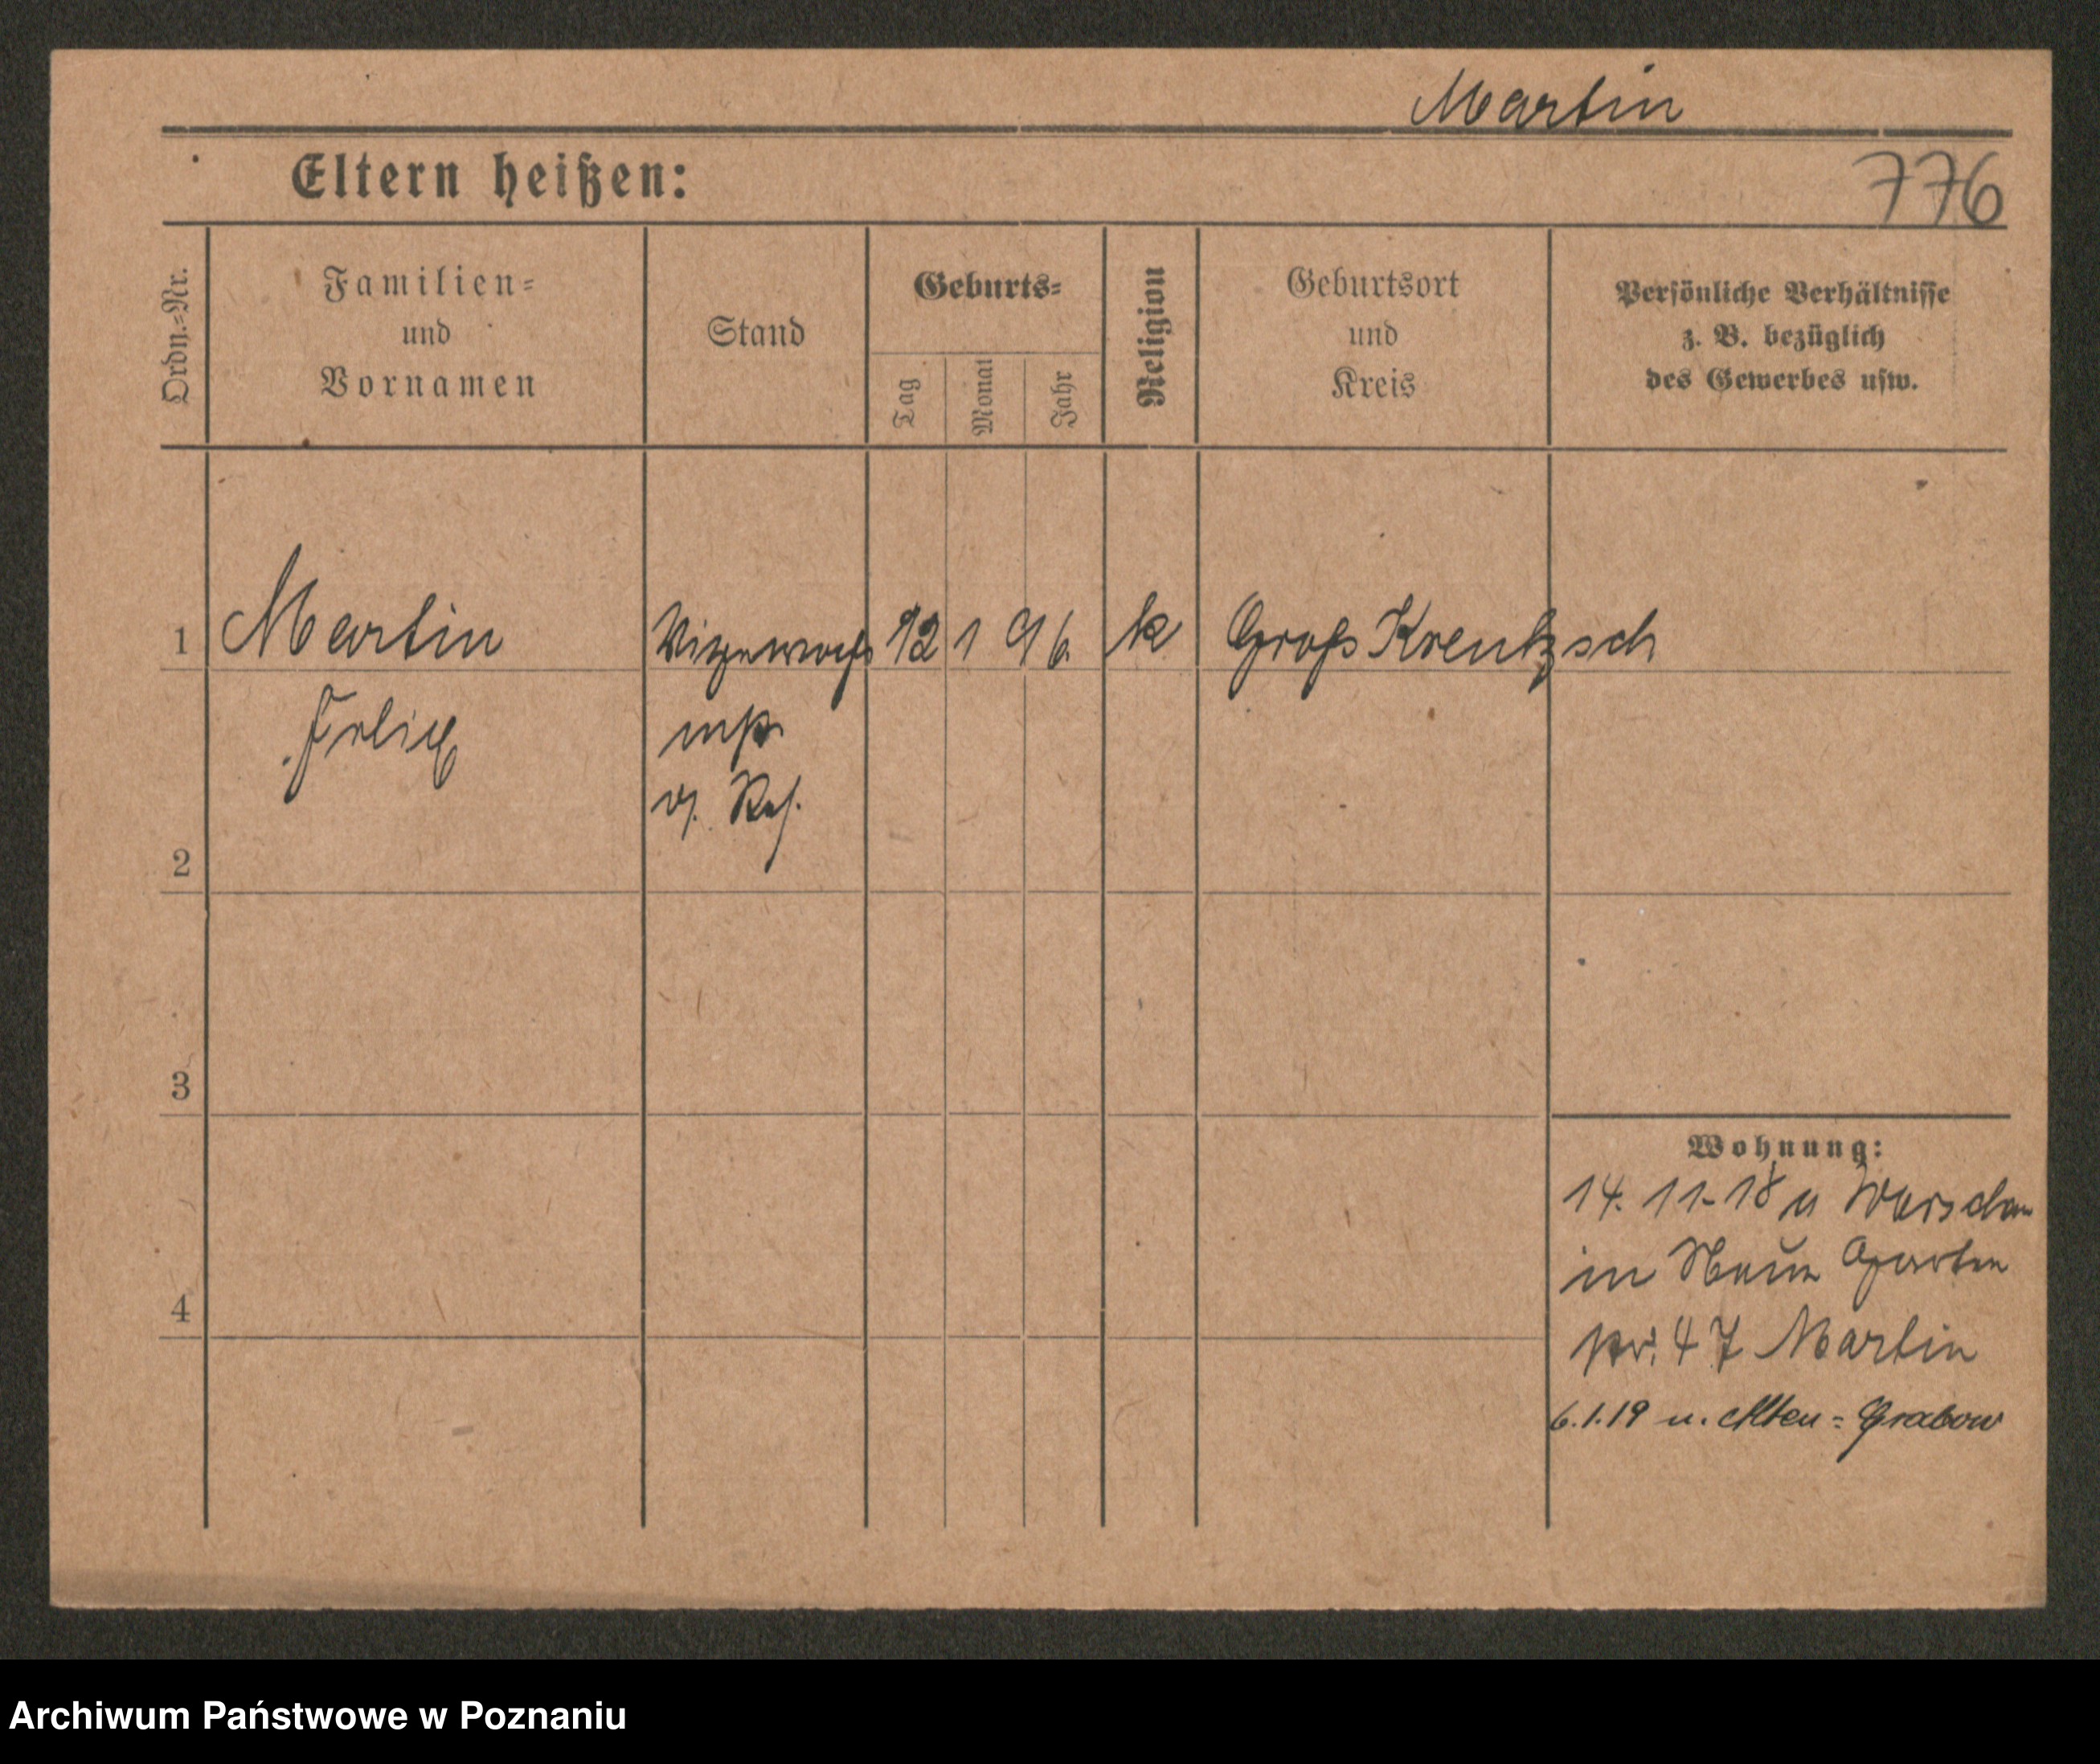 Martin
Eltern heißen:
776
Ordn.-Nr.
Familien-
und
Vornamen
Stand
Geburts-
Tag
Monat
Jahr
Religion
Geburtsort
und
Kreis
Persönliche Verhältnisse
z. B. bezüglich
des Gewerbes usw.
1 Martin 12 1 96. k Groß Kreutzsch
Felix
d. Res.
2
3
Wohnung:
14. 11-18 u Warschau
in
4
Nr. 47 Martin
6.1.19 n. Alten=Grabow
Archiwum Państwowe w Poznaniu